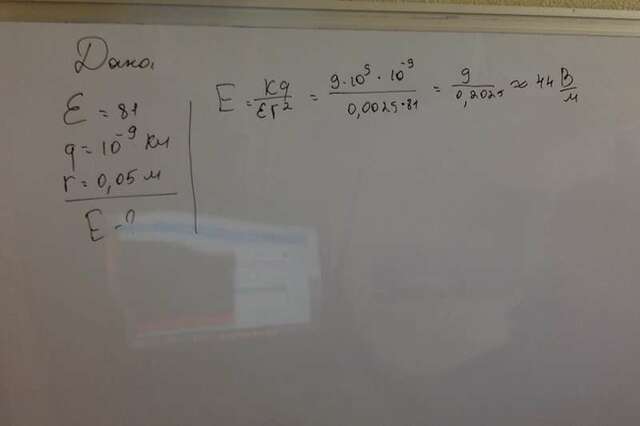 Дано
ε = 81
q = 10⁻⁹ Кл
r = 0,05 м
E - ?
E = kq/εr² = 9·10⁹·10⁻⁹/0,0025·81 = 9/0,2025 ≈ 44 В/м